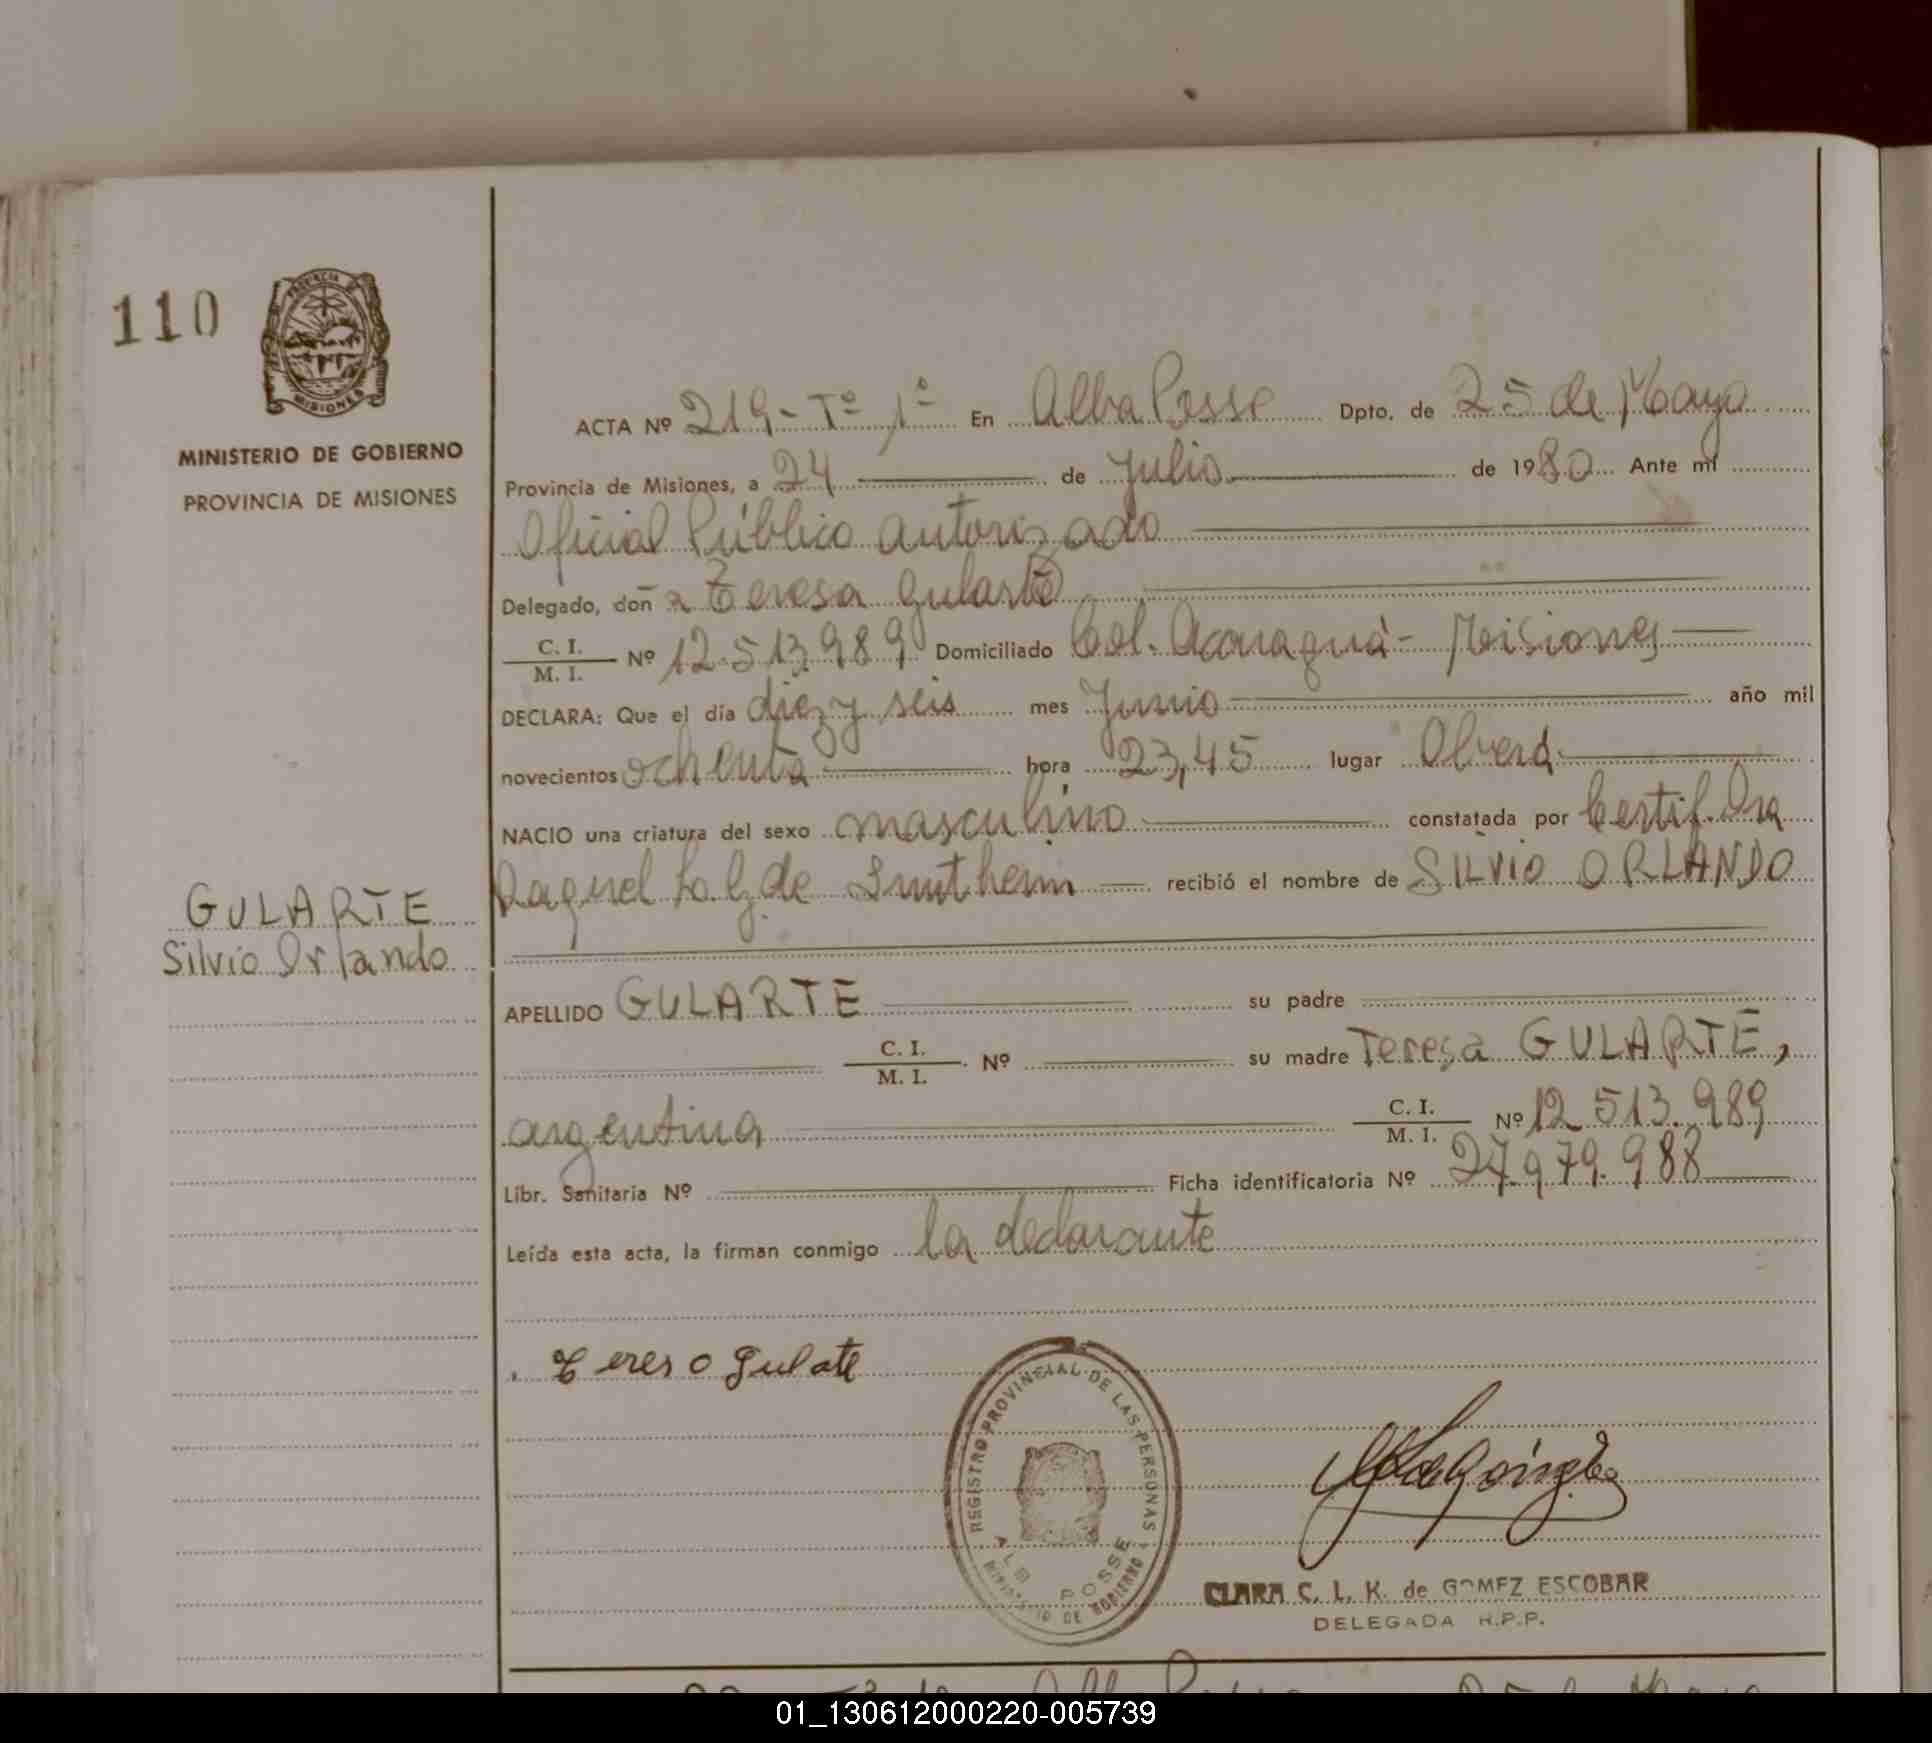 110
PROVINCIA DE
MISIONES
MINISTERIO DE GOBIERNO
PROVINCIA DE MISIONES
ACTA Nº 219 - Tº 1º En Alba Posse Dpto. de 25 de Mayo
Provincia de Misiones, a 24 de Julio de 1980 Ante mí
Oficial Público autorizado
Delegado, doña Teresa Gularte
C. I.
M. I. Nº 12.513.989 Domiciliado Col. Acaraguá - Misiones
DECLARA: Que el día diez y seis mes Junio año mil
novecientos ochenta hora 23,45 lugar Oberá
NACIO una criatura del sexo masculino constatada por Certif. Dra
Raquel de recibió el nombre de SILVIO ORLANDO
GULARTE
Silvio Orlando
APELLIDO GULARTE su padre
C. I.
M. I. Nº su madre Teresa GULARTE,
argentina C. I.
M. I. Nº 12.513.989
Libr. Sanitaria Nº Ficha identificatoria Nº 27.979.988
Leída esta acta, la firman conmigo la declarante
Tereso Gulate
REGISTRO PROVINCIAL DE LAS PERSONAS
ALB POSSE
MINISTERIO DE GOBIERNO
CLARA C. L. K. de GOMEZ ESCOBAR
DELEGADA R.P.P.
01_130612000220-005739